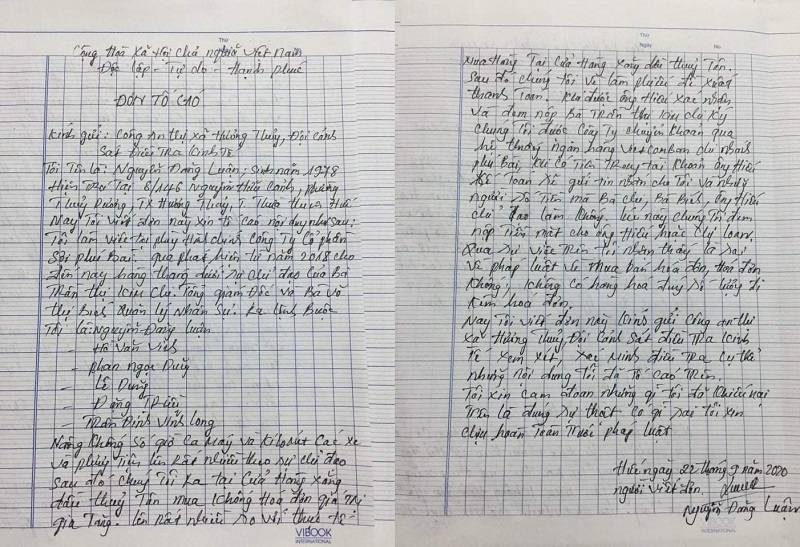 Cộng Hoà Xã Hội chủ nghĩa Việt Nam
Độc lập - Tự do - Hạnh phúc
ĐƠN TỐ CÁO
Kính gửi: Công An thị xã Hương Thuỷ, Đội cảnh
Sát Điều Tra Kinh Tế
Tôi Tên là: Nguyễn Đăng Luận; sinh năm 1978
Hiện Trú Tại 6/146 Nguyễn Hữu Cảnh, phường
Thuỷ Dương, TX Hương Thuỷ, T. Thừa Thiên Huế
Nay Tôi Viết đơn này xin tố cáo nội dung như sau:
Tôi làm việc tại phòng Hành chính Công Ty Cổ phần
Sợi Phú Bài. qua phát hiện từ năm 2018 cho
đến nay hàng tháng dưới sự chỉ đạo của Bà
Trần Thị Kim Chi. Tổng giám Đốc và Bà Võ
Thị Bích Quản lý Nhân Sự. Ra lệnh Buộc
Tôi là: Nguyễn Đăng Luận
- Hồ Văn Vinh
- Phan Ngọc Duy
- Lê Dung
- Đặng
- Trần Đình Vĩnh Long
Nâng Khống Số giờ Ca máy và Kilomet Các xe
Và phương Tiện lên Rất nhiều theo sự chỉ đạo
Sau đó chúng Tôi Ra tại Cửa Hàng Xăng
dầu Thuỷ Tân mua Khống Hoá đơn giá Trị
gia Tăng. lên Rất nhiều so với thực tế
VIBOOK
INTERNATIONAL
Thứ
Ngày
No.
Mua Hàng Tại Cửa Hàng Xăng dầu Thuỷ Tân.
Sau đó chúng Tôi Về làm phiếu đề xuất
thanh Toán. Khi được ông Hiếu xác nhận
Và đem nộp Bà Trần Thị Kim Chi Ký
Chúng Tôi được Công Ty chuyển Khoản qua
hệ thống ngân hàng Vietcombank chi nhánh
Phú Bài, Khi Có Tiền Trong tài Khoản ông Hiếu
Kế Toán Sẽ gửi tin nhắn cho Tôi Và những
người Số Tiền mà Bà Chi, Bà Bích, ông Hiếu
chỉ đạo làm Khống. Lúc này chúng Tôi đem
nộp Tiền mặt cho ông Hiếu hoặc chị Loan.
Qua Sự Việc Trên Tôi nhận thấy là Sai
Về pháp luật Về Mua bán hoá đơn, Hoá đơn
Khống, Không có hàng hoá
Kèm hoá đơn.
Nay Tôi Viết đơn này Kính gửi Công an thị
xã Hương Thuỷ Đội cảnh sát điều Tra Kinh
Tế xem xét, xác Minh điều Tra Cụ thể
những nội dung Tôi đã Tố Cáo Trên.
Tôi xin cam đoan những gì Tôi đã Khiếu nại
Trên là đúng sự thật Có gì sai tôi xin
Chịu hoàn Toàn Trước pháp luật
Huế ngày 22 tháng 9 năm 2020
người Viết đơn.
Nguyễn Đăng Luận
VIBOOK
INTERNATIONAL